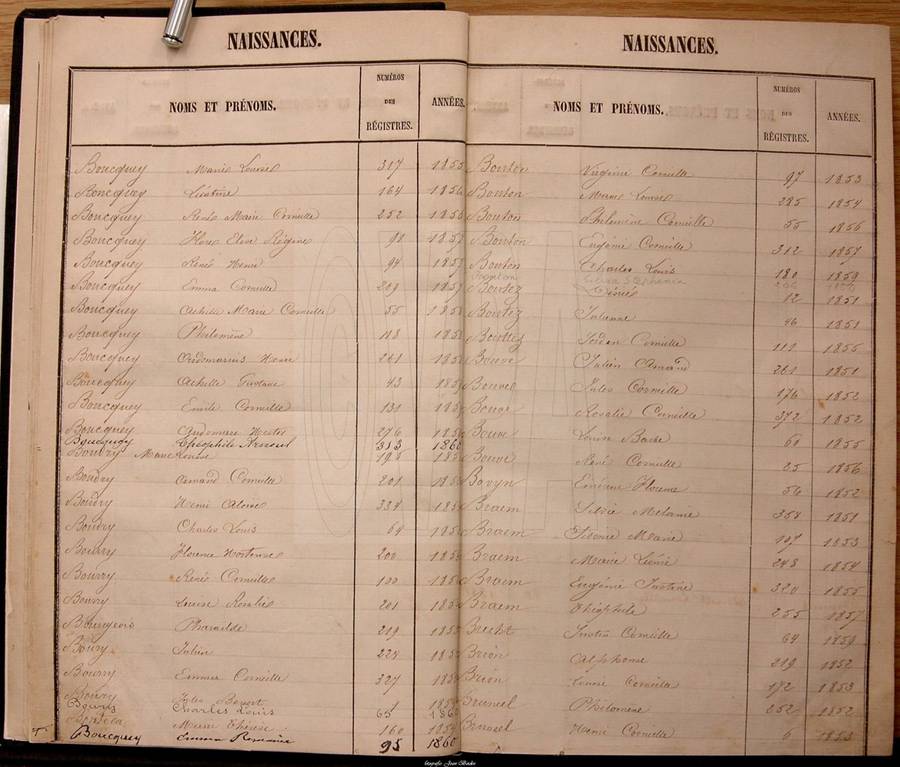 NAISSANCES.
NOMS ET PRÉNOMS. NUMÉROS DES RÉGISTRES. ANNÉES.
Boucquey Marie Louise 317 1855
Boucquey Léontine 164 1856
Boucquey René Marie Corneille 252 1856
Boucquey Elvie Régine 98 1857
Boucquey René Henri 94 1857
Boucquey Emma Cornélie 209 1857
Boucquey Achille Marie Corneille 55 185
Boucquey Philomène 118 185
Boucquey Audomarus Henri 261 185
Boucquey Achille Gustave 43 185
Boucquey Emile Corneille 131 185
Boucquey Audomare Hector 276 185
Boucquey Théophile Arsène 313 1860
Boudry Marie Louise 193 185
Boudry Armand Corneille 201 185
Boudry Henri Aloïse 334 185
Boudry Charles Louis 64 185
Bourry Florence Hortense 200 185
Bourry René Corneille 100 185
Bourry Louise Rosalie 201 185
Bourgeois Pharaïlde 219 185
Boury Julien 224 185
Bourry Emma Cornélie 327 185
Boury Jules Benoit 185
Bourry Charles Louis 65 186
Marie Thérèse 160 185
Boucquey Emma Romanie 95 1860
NAISSANCES.
NOMS ET PRÉNOMS. NUMÉROS DES RÉGISTRES. ANNÉES.
Bouton Virginie Cornélie 97 1853
Bouton Marie Louise 285 1854
Bouton Philomène Cornélie 55 1856
Bouton Eugénie Cornélie 312 1857
Bouton Charles Louis 180 1859
Bouton Silvie Stéphanie
Boutez Désiré 12 1851
Boutez Julienne 96 1851
Bouttez Jordan Corneille 119 1855
Bouve Julien Armand 261 1851
Bouve Jules Corneille 176 1852
Bouve Rosalie Cornélie 372 1852
Bouve Louise Barbe 68 1855
Bouve René Corneille 25 1856
Bovyn Emérence Florence 56 1852
Braem Silvie Mélanie 354 1851
Braem Marie 107 1853
Braem Marie Léonie 248 1854
Braem Eugénie Justine 320 1855
Braem Théophile 255 1857
Brecht Justin Corneille 64 1859
Brion Alphonse 219 1852
Brion Louise Cornélie 172 1853
Bruneil Philomène 252 1852
Bruneel Henri Corneille 6 1853